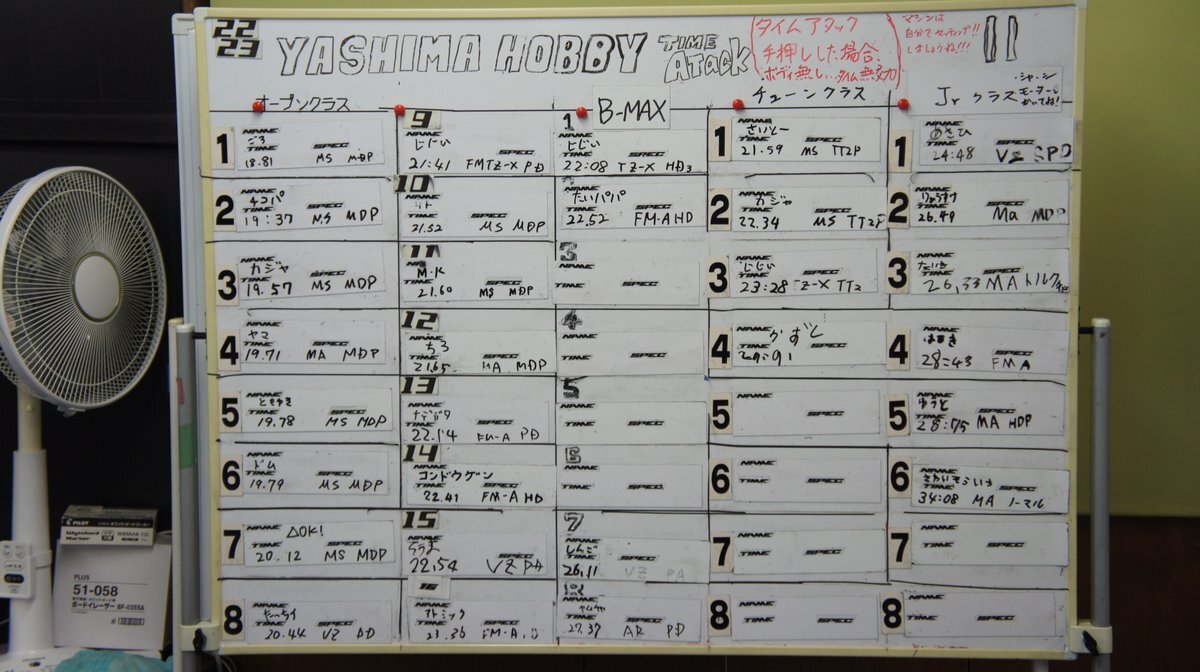 22
23
YASHIMA HOBBY TIME ATacK
タイムアタック
手押しした場合、
ボディ無し...タイム無効
マシンは
自分でセッティング!!
しましょうね!!!
11
オープンクラス
B-MAX
チューンクラス
Jr クラス
シャーシ
モーター
かいてね!
1 NAME
TIME 18.81 SPEC MS MDP
2 NAME
TIME 19:37 SPEC MS MDP
3 NAME カジャ
TIME 19.57 SPEC MS MDP
4 NAME ヤマ
TIME 19.71 SPEC MA MDP
5 NAME ともゆき
TIME 19.78 SPEC MS MDP
6 NAME ドム
TIME 19.79 SPEC MS MDP
7 NAME △OK!
TIME 20.12 SPEC MS MDP
8 NAME
TIME 20.44 SPEC VZ
9 NAME じじい
TIME 21:41 SPEC FMTZ-X PD
10 NAME
TIME 21.52 SPEC MS MDP
11 NAME M.K
TIME 21.60 SPEC MS MDP
12 NAME ちろ
TIME 21.65 SPEC MA MDP
13 NAME
TIME 22.14 SPEC FM-A PD
14 NAME コンドウゲン
TIME 22.41 SPEC FM-A HD
15 NAME
TIME 22.54 SPEC VZ PD
16 NAME アトミック
TIME SPEC FM-A
1 NAME じじい
TIME 22:08 SPEC TZ-X HD3
NAME たいパパ
TIME 22.52 SPEC FM-A HD
3 NAME
TIME SPEC
4 NAME
TIME SPEC
5 NAME
TIME SPEC
6 NAME
TIME SPEC
7 NAME しんご
TIME 26.11 SPEC VZ PD
NAME
TIME 27.37 SPEC AR PD
1 NAME さいとー
TIME 21.59 SPEC MS TT2P
2 NAME カジャ
TIME 22.34 SPEC MS TT2P
3 NAME じじい
TIME 23:28 SPEC TZ-X TT2
4 NAME かずと
TIME SPEC
5 NAME
TIME SPEC
6 NAME
TIME SPEC
7 NAME
TIME SPEC
8 NAME
TIME SPEC
1 NAME あさひ
TIME 24:48 SPEC VZ SPD
2 NAME りゅうすけ
TIME 26.49 SPEC Ma MDP
3 NAME たいき
TIME 26,33 SPEC MA トルク
4 NAME はるき
TIME 28:43 SPEC FMA
5 NAME ゆうと
TIME 28:75 SPEC MA HDP
6 NAME
TIME 34:08 SPEC MA ノーマル
7 NAME
TIME SPEC
8 NAME
TIME SPEC
PILOT
Whiteboard Marker
WBMAR-12L
PLUS
51-058
ボードイレーザー BF-035SA